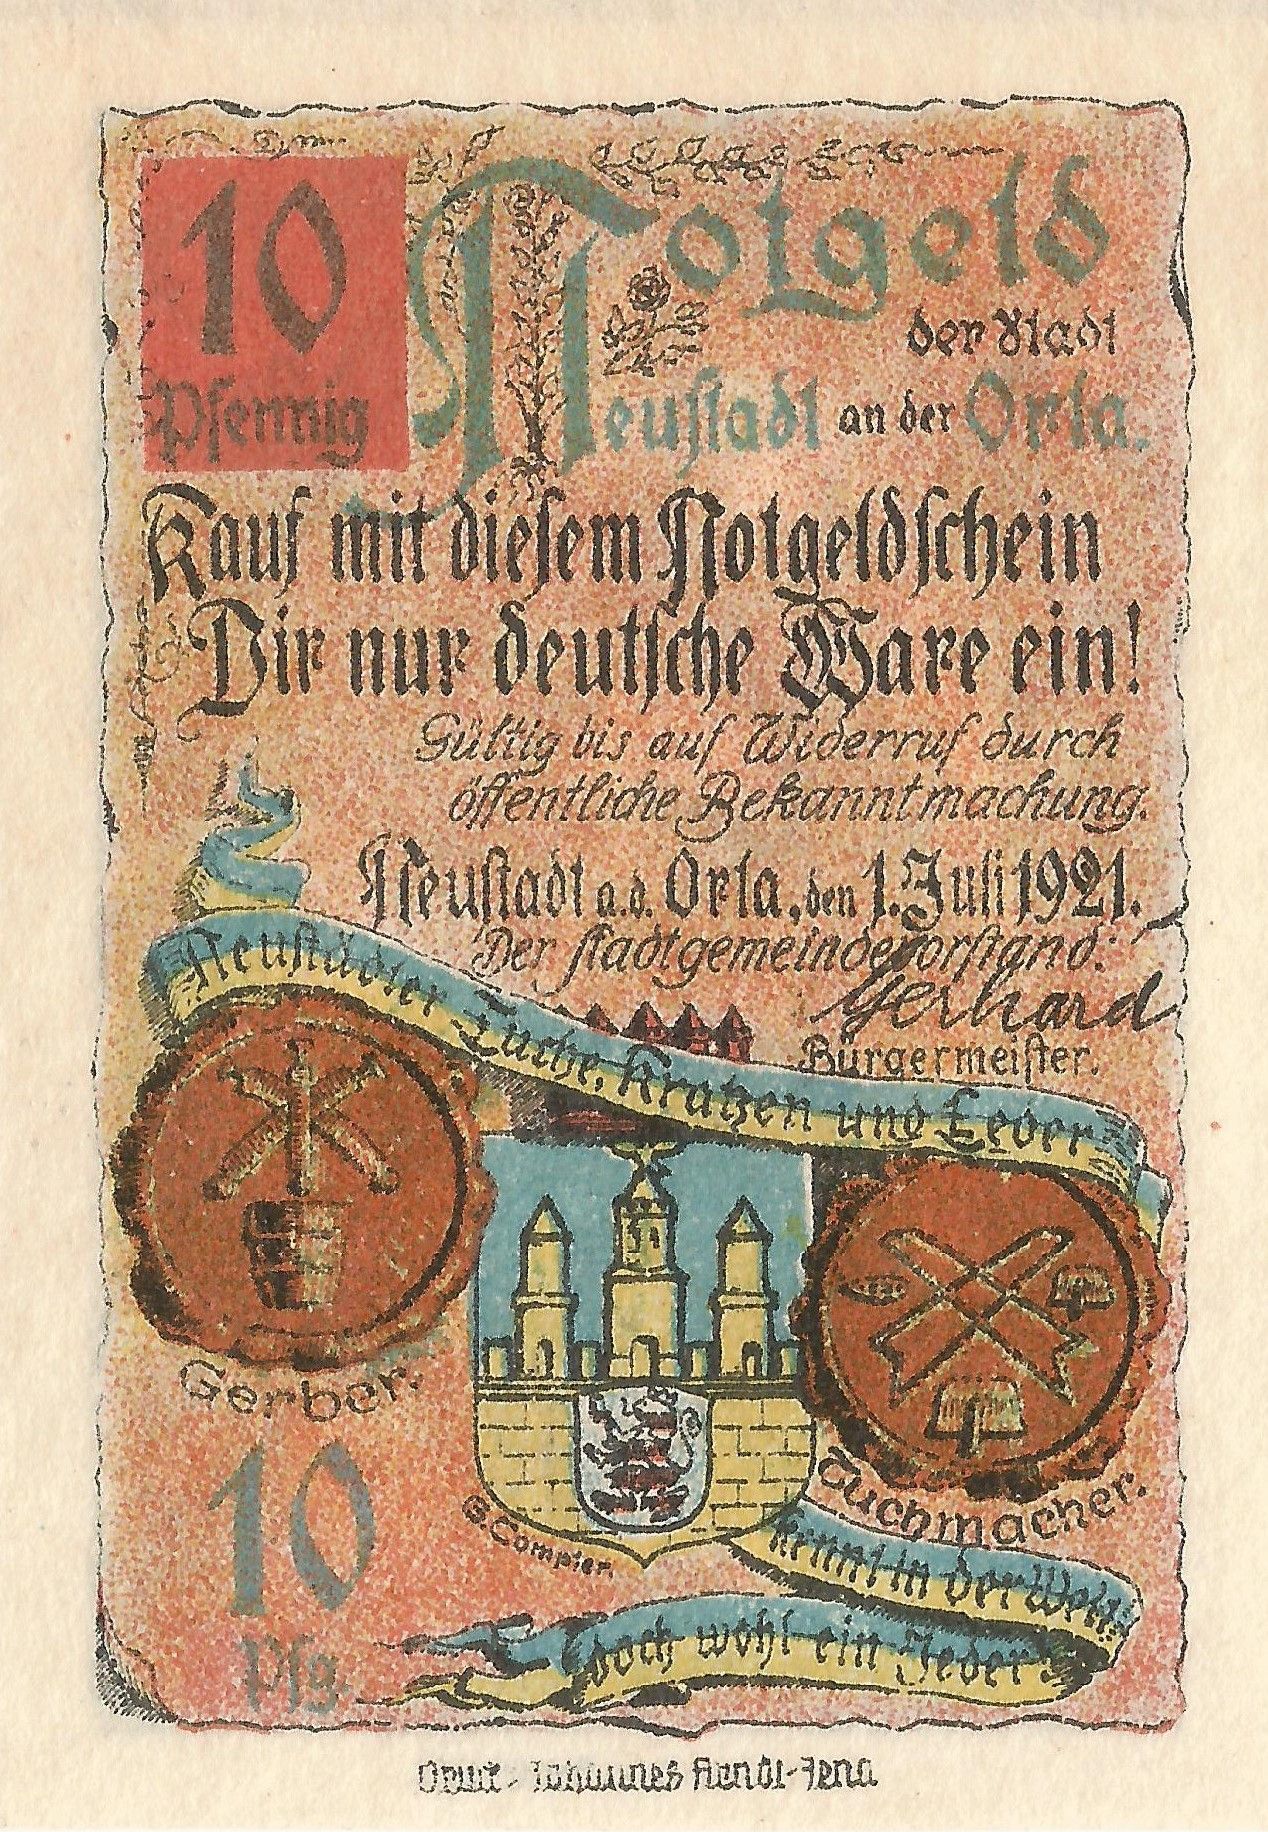 10
Pfennig
Notgeld
der Stadt
Neustadt an der Orla.
Kauf mit diesem Notgeldschein
Dir nur deutsche Ware ein!
Gültig bis auf Widerruf durch
öffentliche Bekanntmachung.
Neustadt a.d. Orla, den 1. Juli 1921.
Der Stadtgemeindevorstand:
Gerhard
Bürgermeister.
Neustädter Tuche, Kratzen und Leder
Gerber.
Tuchmacher.
G. Compter.
kennt in der Welt
doch wohl ein Jeder!
10
Pfg.
Druck - Johannes Arndt-Jena